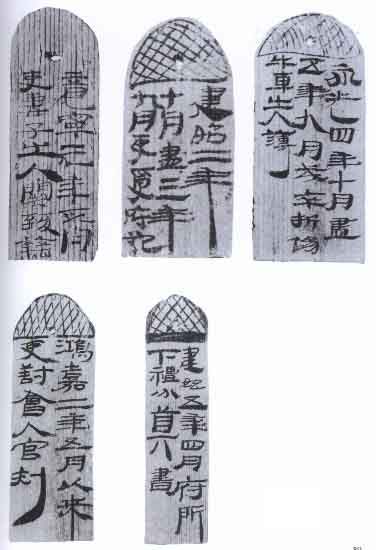 竟寧元年正月
吏妻子出入關致籍
建昭二年
十月盡三年
九月吏受府記
永光四年十月盡
五年八月戍卒折傷
牛車出入簿
鴻嘉二年五月以來
吏對會入官刺
建始五年四月府所
下禮分 書